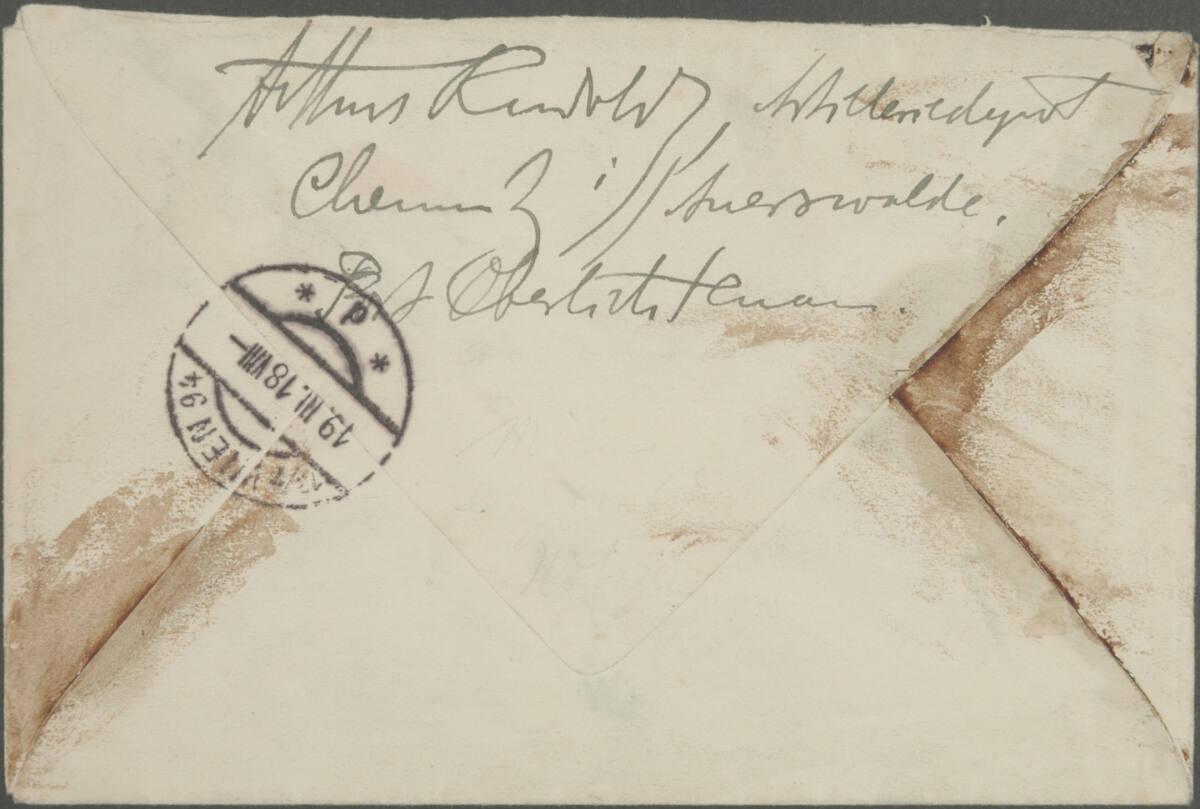 Arthur Rudolf, Artilleriedepot
Chemnitz i/S Auerswalde.
Post Oberlichtenau.
* p *
19.III.18 VIII–
MEN 9 *